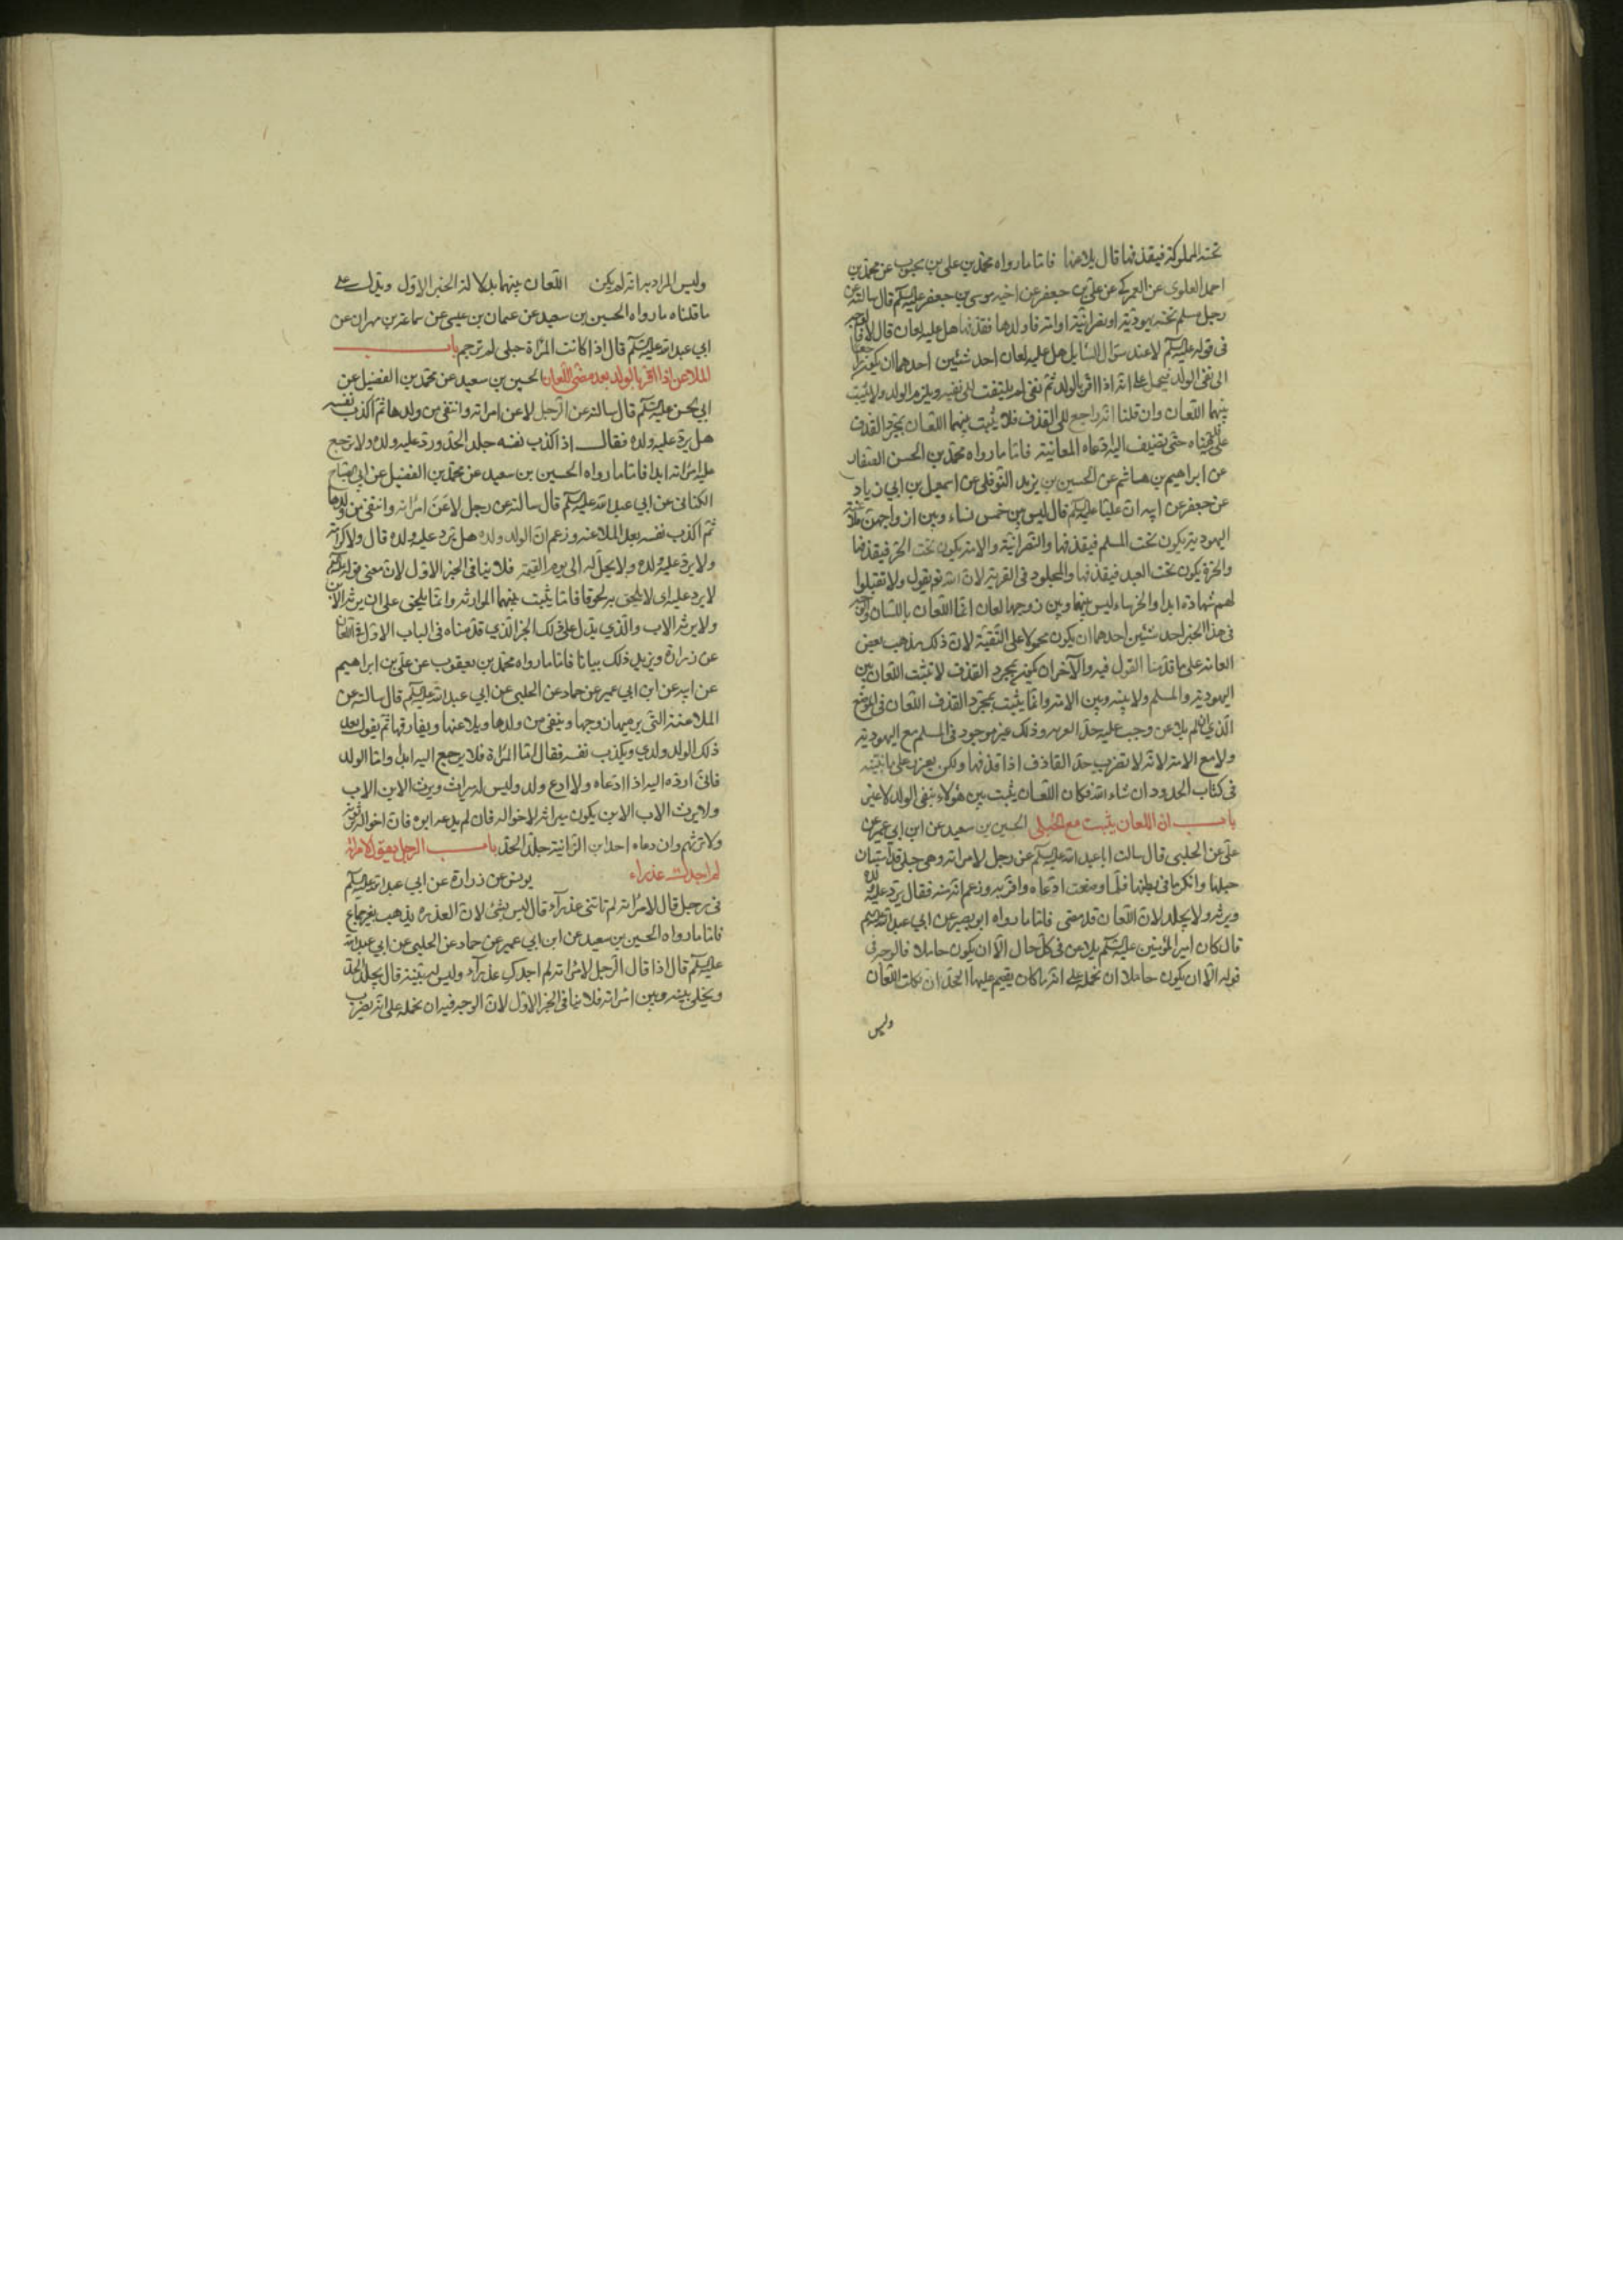 تحته المملوكة فيقذفها قال يلاعنها فاما ما رواه محمد بن علي بن محبوب عن محمد بن
احمد العلوي عن العمركي عن علي بن جعفر عن اخيه موسى بن جعفر عليه السلم قال سالته عن
رجل مسلم تحته يهودية او نصرانية او امة فاولدها فقذفها هل عليه لعان قال لا فالوجه
في قوله عليه السلم لا عند سؤال السايل هل عليه لعان احد شيئين احدهما ان يكون راجعا
الى نفي الولد فيحمل على انه اذا اقر بالولد ثم نفى لم يلتفت الى نفيه ويلزمه الولد ولا يثبت
بينهما اللعان وان قلنا انه راجع الى القذف فلا يثبت بينهما اللعان بمجرد القذف
على ما بيناه حتى تضيف اليه ادعاه المعاينة فاما ما رواه محمد بن الحسن الصفار
عن ابراهيم بن هاشم عن الحسين بن يزيد النوفلي عن اسمعيل بن ابي زياد
عن جعفر عن ابيه ان عليا عليه السلم قال ليس بين خمس نساء وبين ازواجهن ملاعنة
اليهودية يكون تحت المسلم فيقذفها والنصرانية والامة يكون تحت الحر فيقذفها
والحرة يكون تحت العبد فيقذفها والمجلود في الفرية لان الله تع يقول ولا تقبلوا
لهم شهادة ابدا والخرساء ليس بينها وبين زوجها لعان انما اللعان باللسان فالوجه
في هذا الخبر احد شيئين احدهما ان يكون محمولا على التقية لان ذلك مذهب بعض
العامة على ما قدمنا القول فيه والاخر ان يكون بمجرد القذف لا تثبت اللعان بين
اليهودية والمسلم ولا بينه وبين الامة وانما يثبت بمجرد القذف اللعان في الموضع
الذي ان لم يلاعن وجب عليه حد الفرية وذلك غير موجود في المسلم مع اليهودية
ولا مع الامة لانه لا يضرب حد القاذف اذا قذفها ولكن يعزر على ما نبينه
في كتاب الحدود ان شاء الله فكان اللعان يثبت بين هؤلاء بنفي الولد لا غير
باب ان اللعان يثبت مع الحبلى الحسين بن سعيد عن ابن ابي عمير عن
علي عن الحلبي قال سالت ابا عبد الله عليه السلم عن رجل لا امراته وهي حبلى قد استبان
حبلها وانكر ما في بطنها فلما وضعت ادعاه واقر به وزعم انه منه فقال يرد عليه ولده
ويرثه ولا يجلد لان اللعان قد مضى فاما ما رواه ابو بصير عن ابي عبد الله عليه السلم
قال كان امير المؤمنين عليه السلم يلاعن في كل حال الا ان يكون حاملا فالوجه في
قوله الا ان يكون حاملا ان نحمله على انه ما كان يقيم عليها الحد ان نكلت اللعان
وليس
وليس المراد به انه لم يكن اللعان بينهما بدلالة الخبر الاول ويدل على
ما قلناه ما رواه الحسين بن سعيد عن عثمان بن عيسى عن سماعة بن مهران عن
ابي عبد الله عليه السلم قال اذا كانت المراة حبلى لم ترجم باب
الملاعن اذا اقر بالولد بعد مضي اللعان الحسين بن سعيد عن محمد بن الفضيل عن
ابي الحسن عليه السلم قال سالته عن الرجل لاعن امراته وانتفى من ولدها ثم اكذب نفسه
هل يرد عليه ولده فقال اذا اكذب نفسه جلد الحد ورد عليه ولده ولا ترجع
عليه امراته ابدا فاما ما رواه الحسين بن سعيد عن محمد بن الفضيل عن ابي الصباح
الكناني عن ابي عبد الله عليه السلم قال سالته عن رجل لاعن امراته وانتفى من ولدها
ثم اكذب نفسه بعد الملاعنة وزعم ان الولد ولده هل ترد عليه ولده قال ولا كرامة
ولا يرد عليه ولده ولا يحل له الى يوم القيمة فلا ينافي الخبر الاول لان معنى قوله عليه السلم
لا يرد عليه اي لا يلحق به لحوقا تاما يثبت بينهما الموارثة وانما يلحق على ان يرثه الابن
ولا يرثه الاب والذي يدل على ذلك الخبر الذي قدمناه في الباب الاول في اللعان
عن زرارة ويزيد ذلك بيانا فاما ما رواه محمد بن يعقوب عن علي بن ابراهيم
عن ابيه عن ابن ابي عمير عن حماد عن الحلبي عن ابي عبد الله عليه السلم قال سالته عن
الملاعنة التي يرميها زوجها وينفي من ولدها ويلاعنها ويفارقها ثم يقول بعد
ذلك الولد ولدي ويكذب نفسه فقال اما المراة فلا يرجع اليه ابدا واما الولد
فاني ارده اليه اذا ادعاه ولا ادع ولده وليس له ميراث ويرث الابن الاب
ولا يرث الاب الابن يكون ميراثه لاخواله فان لم يدعه ابوه فان اخواله يرثونه
ولا يرثهم وان دعاه احد ابن الزانية جلد الحد باب الرجل يقول لامراته
لم اجدك عذراء يونس عن زرارة عن ابي عبد الله عليه السلم
في رجل قال لامراته لم تاتني عذرآء قال ليس بشئ لان العذرة يذهب بغير جماع
فاما ما رواه الحسين بن سعيد عن ابن ابي عمير عن حماد عن الحلبي عن ابي عبد الله
عليه السلم قال اذا قال الرجل لامراته لم اجدك عذرآء وليس له بينة قال يجلد الحد
ويخلى بينه وبين امراته فلا ينافي الخبر الاول لان الوجه فيه ان نحمله على انه يضرب